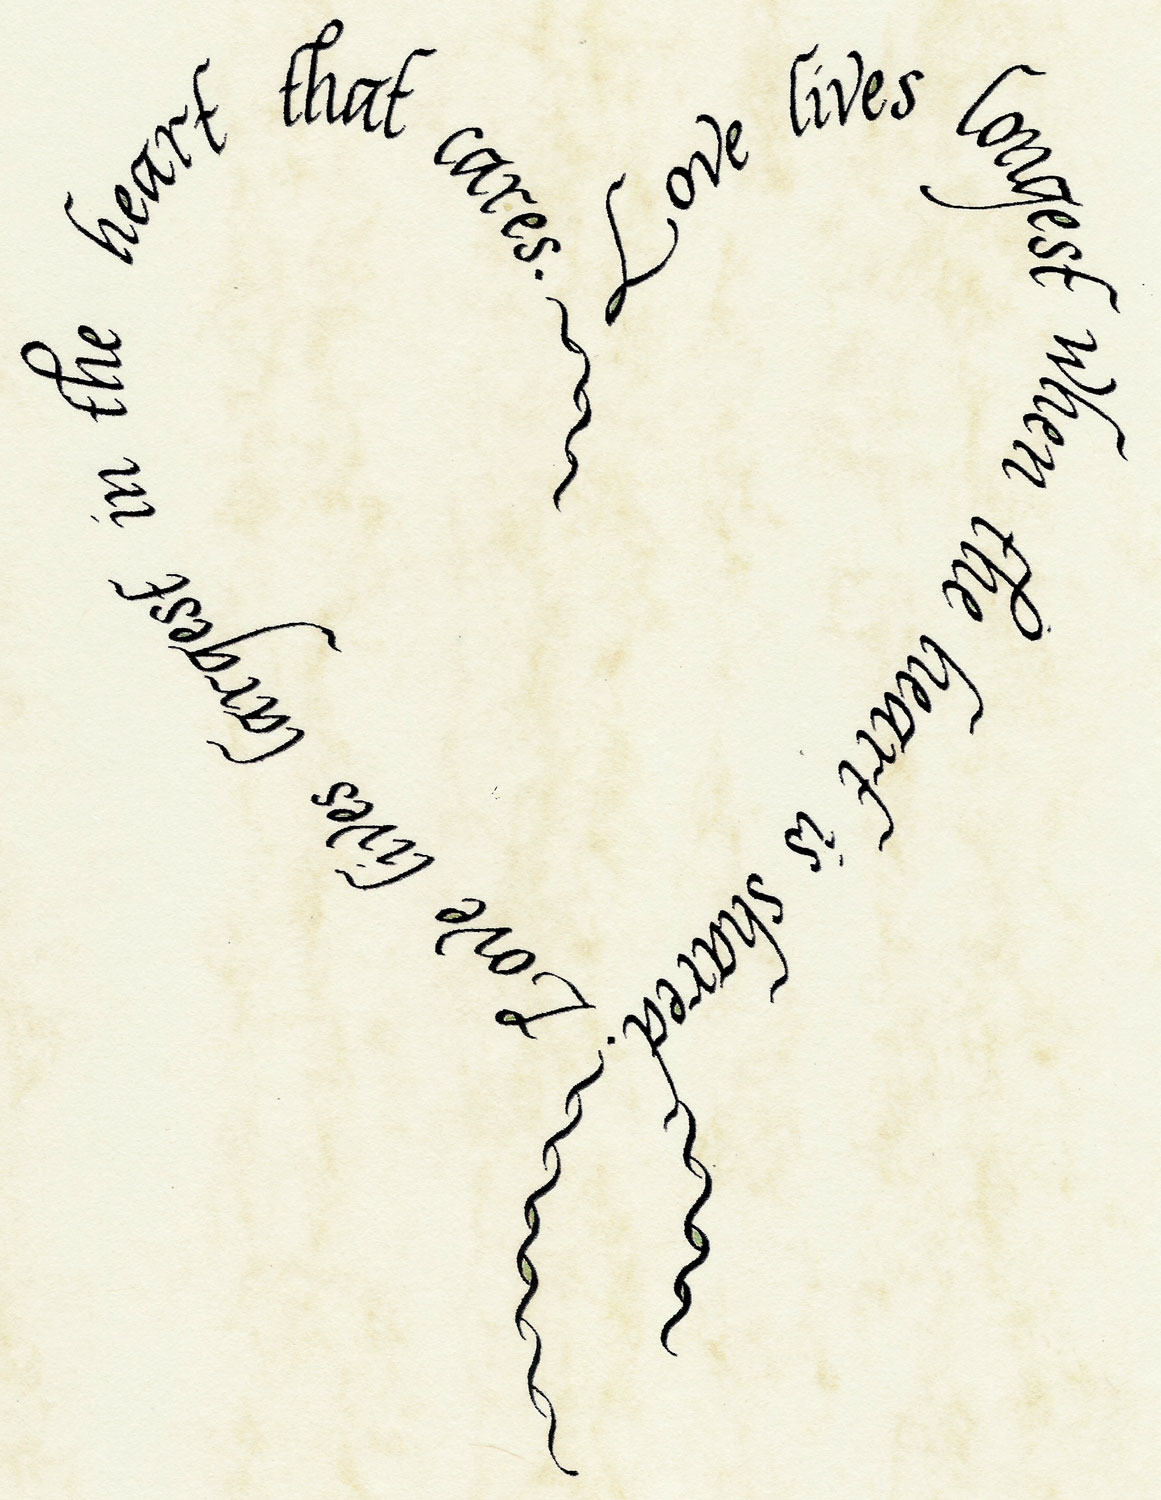 Love lives largest in the heart that cares.
Love lives longest when the heart is shared.